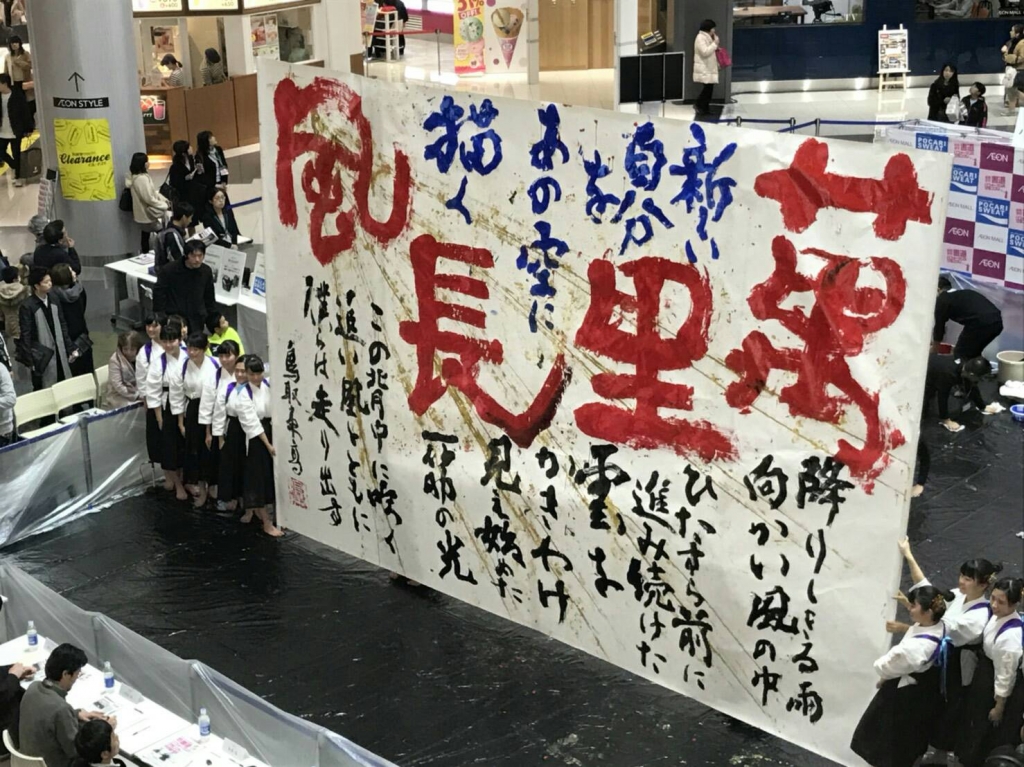 萬里長風
降りしきる雨
向かい風の中
ひたすら前に
進み続けた
雲を
かきわけ
見え始めた
一筋の光
新しい
自分
を
あの空に
描く
この背中に吹く
追い風とともに
僕らは走り出す
鳥取東高
ÆON STYLE
Clearance
POCARI SWEAT
ÆON
ÆON MALL